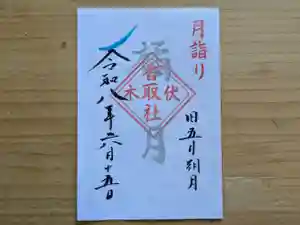 月詣り
旧五月朔月
橘月
伏木
香取社
令和八年六月十五日